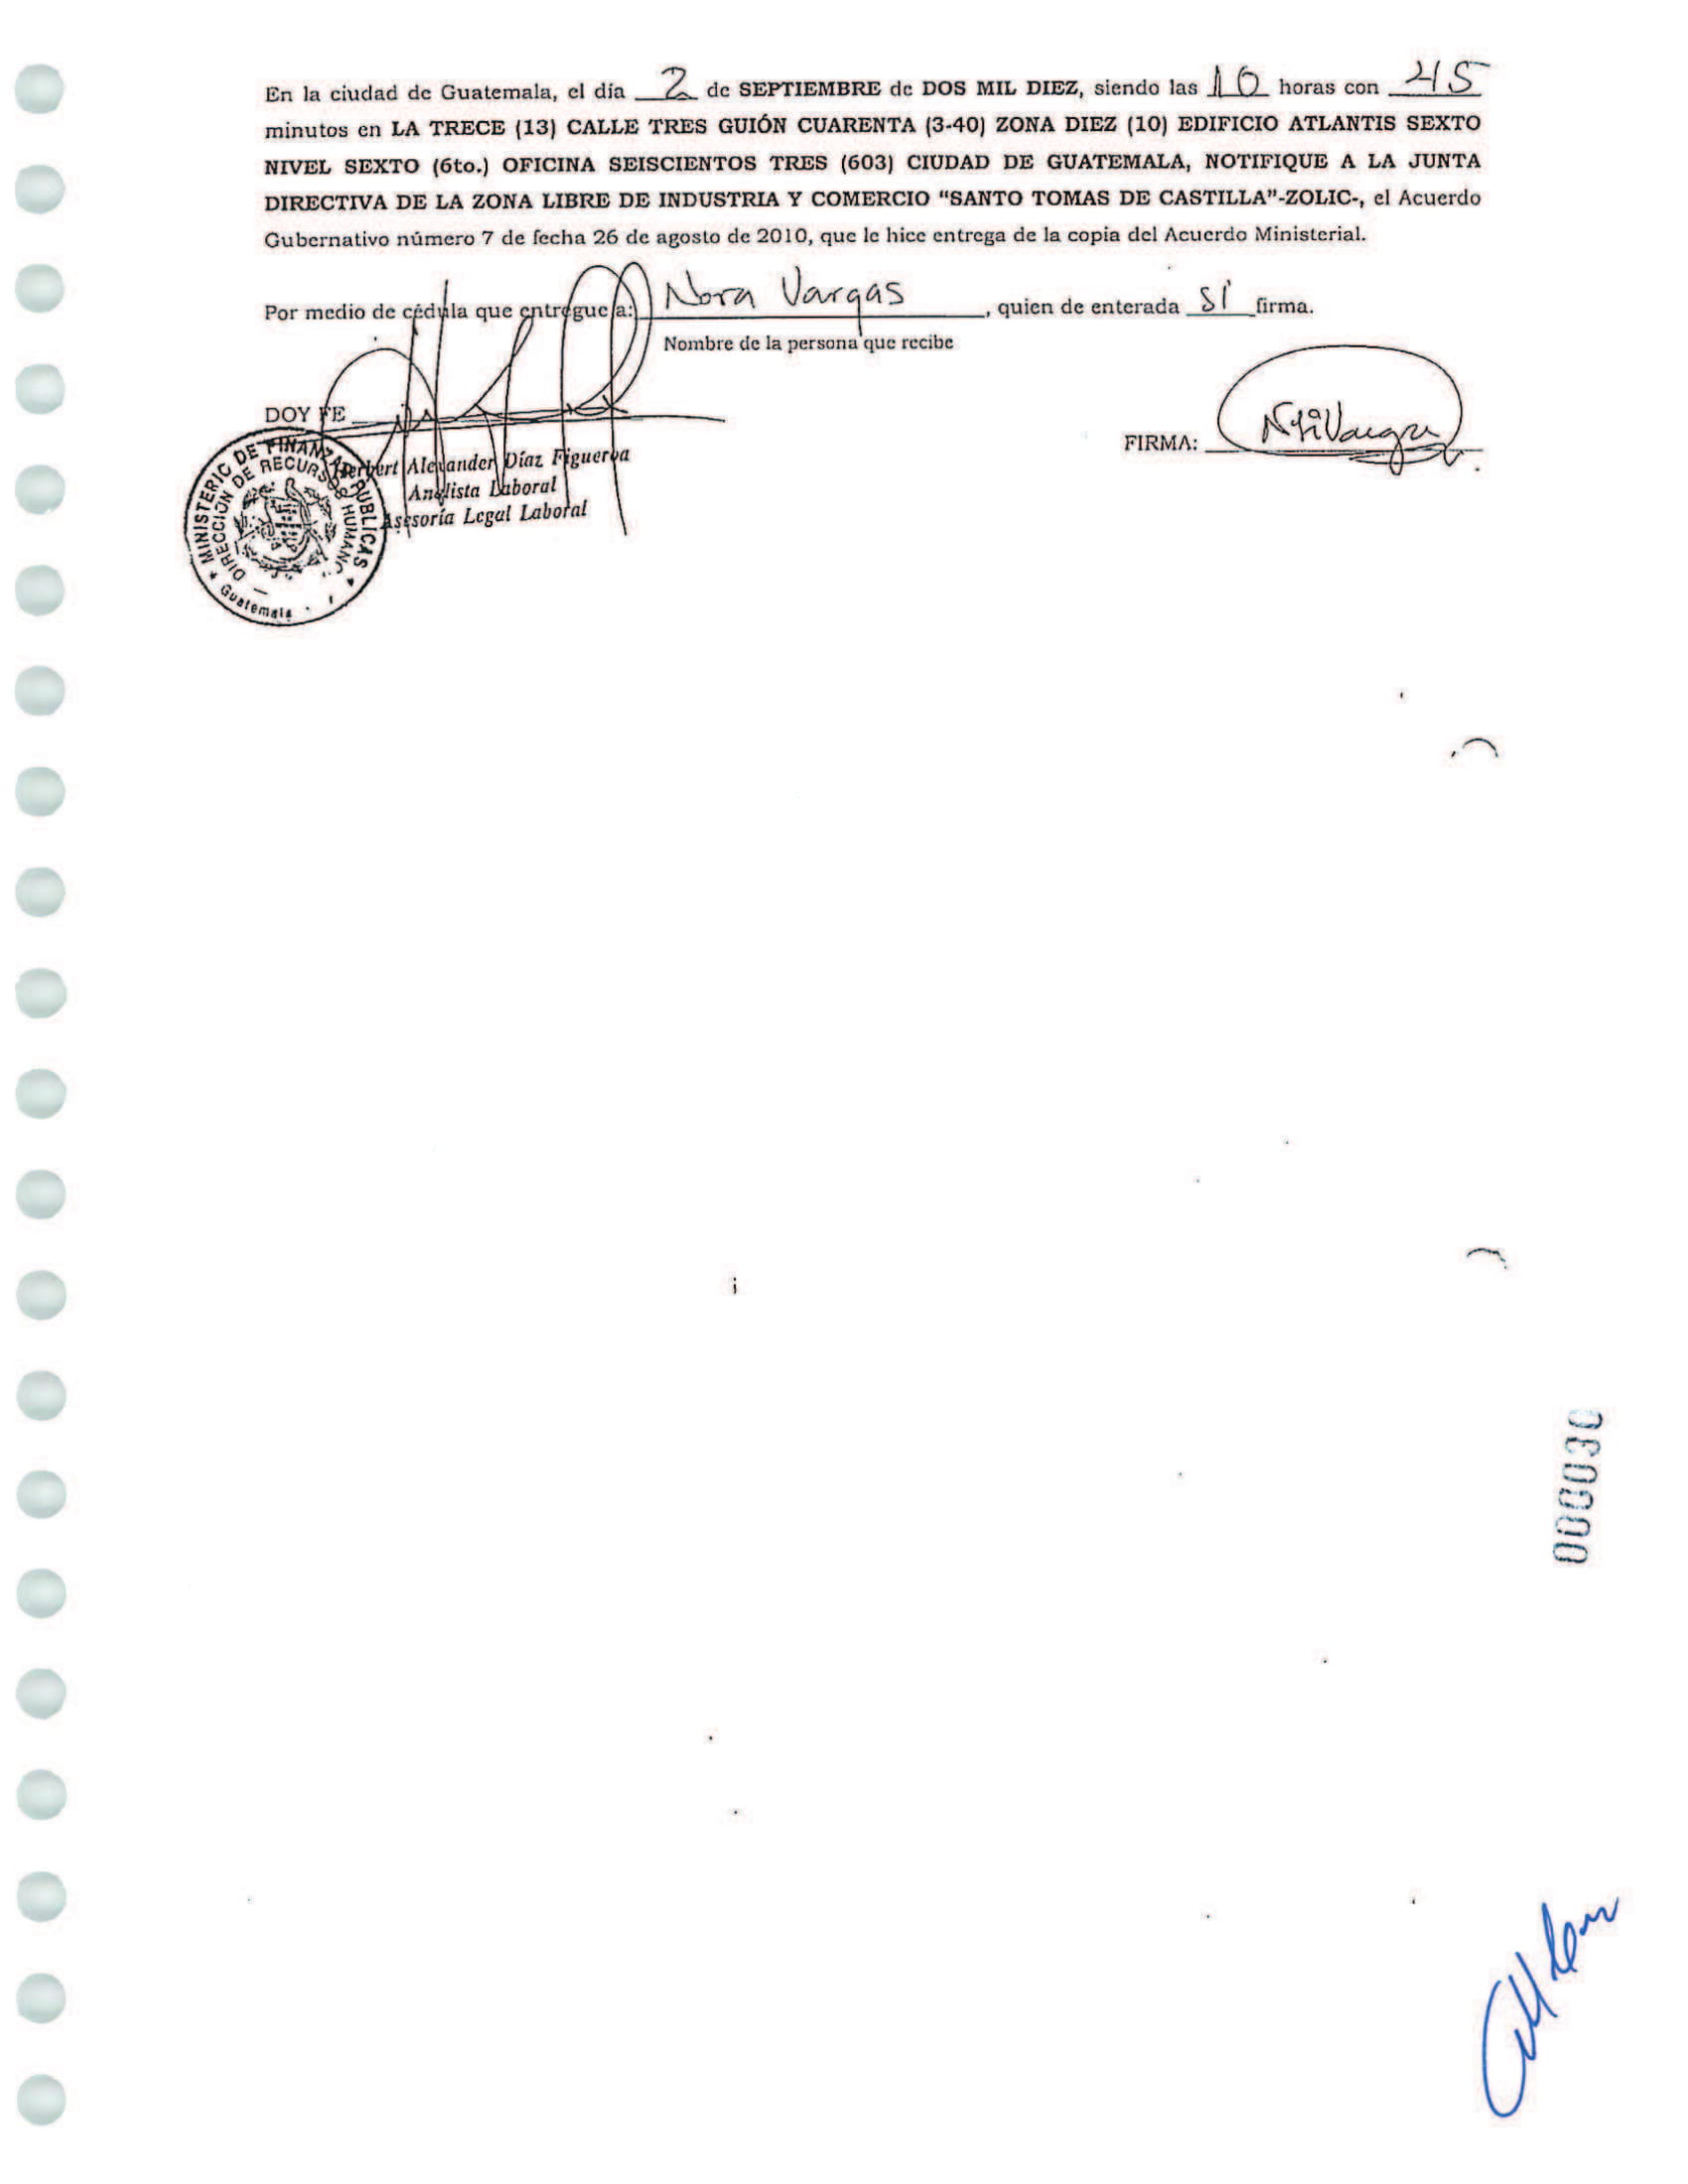 En la ciudad de Guatemala, el día 2 de SEPTIEMBRE de DOS MIL DIEZ, siendo las 10 horas con 45
minutos en LA TRECE (13) CALLE TRES GUIÓN CUARENTA (3-40) ZONA DIEZ (10) EDIFICIO ATLANTIS SEXTO
NIVEL SEXTO (6to.) OFICINA SEISCIENTOS TRES (603) CIUDAD DE GUATEMALA, NOTIFIQUE A LA JUNTA
DIRECTIVA DE LA ZONA LIBRE DE INDUSTRIA Y COMERCIO “SANTO TOMAS DE CASTILLA”-ZOLIC-, el Acuerdo
Gubernativo número 7 de fecha 26 de agosto de 2010, que le hice entrega de la copia del Acuerdo Ministerial.
Por medio de cédula que entregue a: Nora Vargas, quien de enterada sí firma.
Nombre de la persona que recibe
DOY FE
FIRMA:
Alexander Díaz Figueroa
Analista Laboral
Asesoría Legal Laboral
MINISTERIO DE FINANZAS PUBLICAS
DIRECCIÓN DE RECURSOS HUMANO
Guatemala
000030